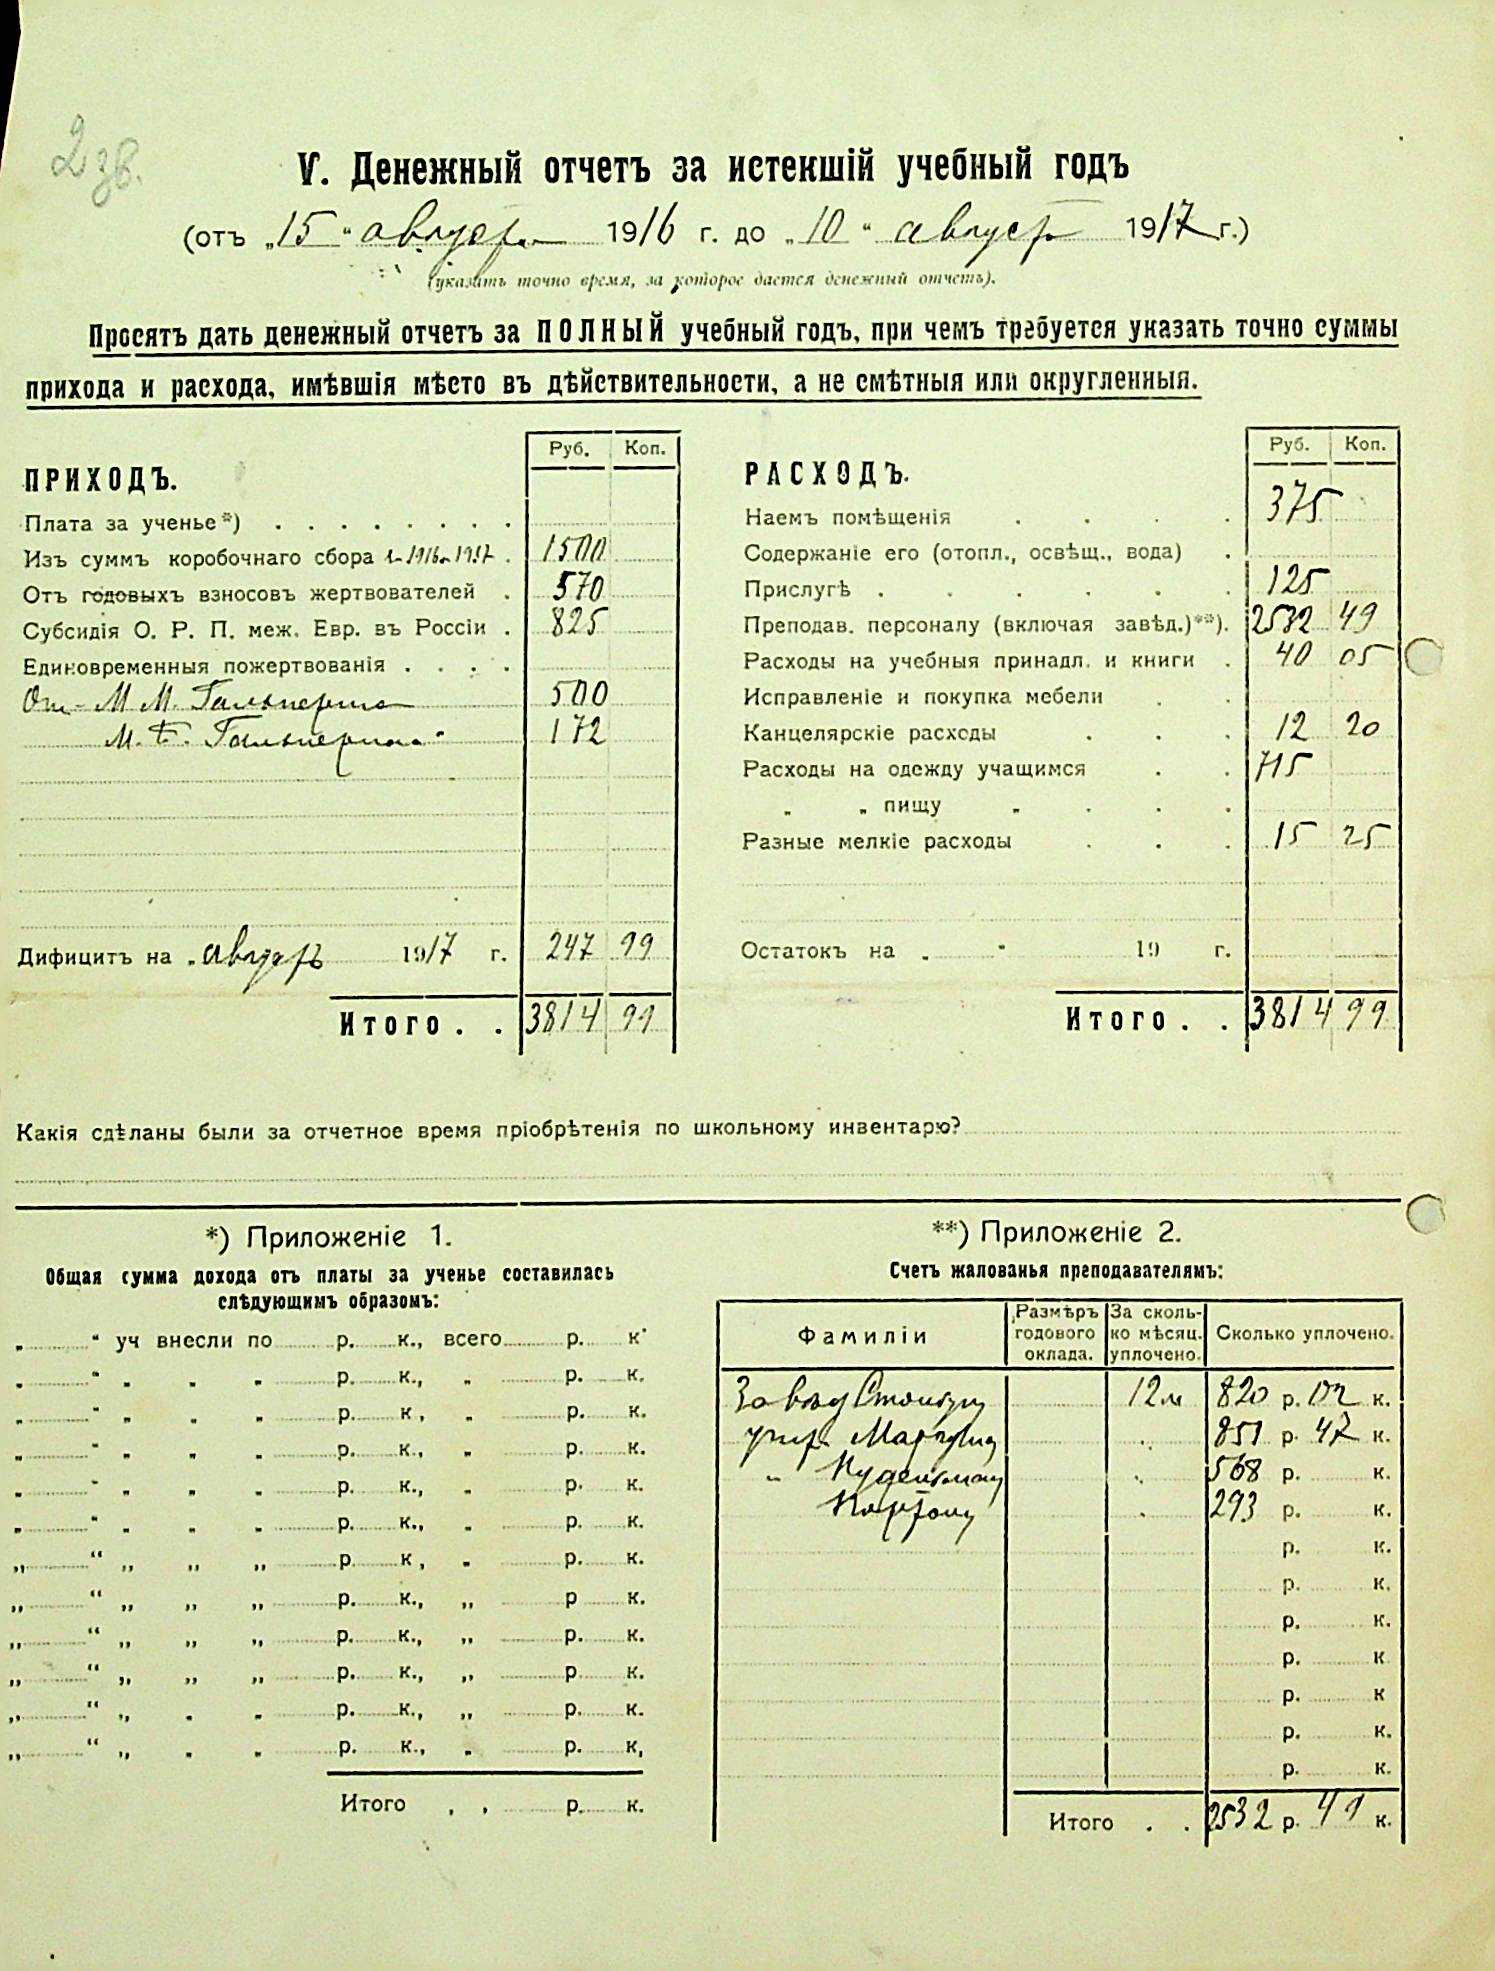 2 зв.
V. Денежный отчетъ за истекшій учебный годъ
(отъ „15“ август 1916 г. до „10“ август 1917 г.)
(указать точно время, за которое дается денежный отчетъ).
Просятъ дать денежный отчетъ за ПОЛНЫЙ учебный годъ, при чемъ требуется указать точно суммы
прихода и расхода, имѣвшія мѣсто въ дѣйствительности, а не смѣтныя или округленныя.
ПРИХОДЪ. Руб. Коп.
Плата за ученье*) . . . . . . . .
Изъ суммъ коробочнаго сбора 1916-1917 . 1500
Отъ годовыхъ взносовъ жертвователей . 570
Субсидія О. Р. П. меж. Евр. въ Россіи . 825
Единовременныя пожертвованія . . . .
От М М. Гальперина 500
М. Б. Гальперина 172
Дифицитъ на „август 1917 г. 247 99
Итого . . 3814 99
РАСХОДЪ. Руб. Коп.
Наемъ помѣщенія . . . . 375
Содержаніе его (отопл., освѣщ., вода) .
Прислугѣ . . . . . . 125
Преподав. персоналу (включая завѣд.)**). 2532 49
Расходы на учебныя принадл. и книги . 40 05
Исправленіе и покупка мебели . .
Канцелярскіе расходы . . . 12 20
Расходы на одежду учащимся . . 715
„ „ пищу „ . . .
Разные мелкіе расходы . . . 15 25
Остатокъ на „ “ 19 г.
Итого . . 3814 99
Какія сдѣланы были за отчетное время пріобрѣтенія по школьному инвентарю?
*) Приложеніе 1.
Общая сумма дохода отъ платы за ученье составилась
слѣдующимъ образомъ:
„ “ уч внесли по р. к., всего р. к.
„ “ „ „ „ р. к., „ р. к.
„ “ „ „ „ р. к , „ р. к.
„ “ „ „ „ р. к., „ р. к.
„ “ „ „ „ р. к., „ р. к.
„ “ „ „ „ р. к., „ р. к.
„ “ „ „ „ р. к , „ р. к.
„ “ „ „ „ р. к., „ р к.
„ “ „ „ „ р. к., „ р. к.
„ “ „ „ „ р. к., „ р к.
„ “ „ „ „ р. к., „ р. к.
„ “ „ „ „ р. к., „ р. к,
Итого . . р. к.
**) Приложеніе 2.
Счетъ жалованья преподавателямъ:
Фамиліи Размѣръ годового оклада. За сколько мѣсяц. уплочено. Сколько уплочено.
Завѣд 12 м 820 р. 02 к.
851 р. 47 к.
„ 568 р. к.
293 р. к.
р. к.
р. к.
р. к.
р. к
р. к
р. к.
р. к.
Итого . . 2532 р. 49 к.